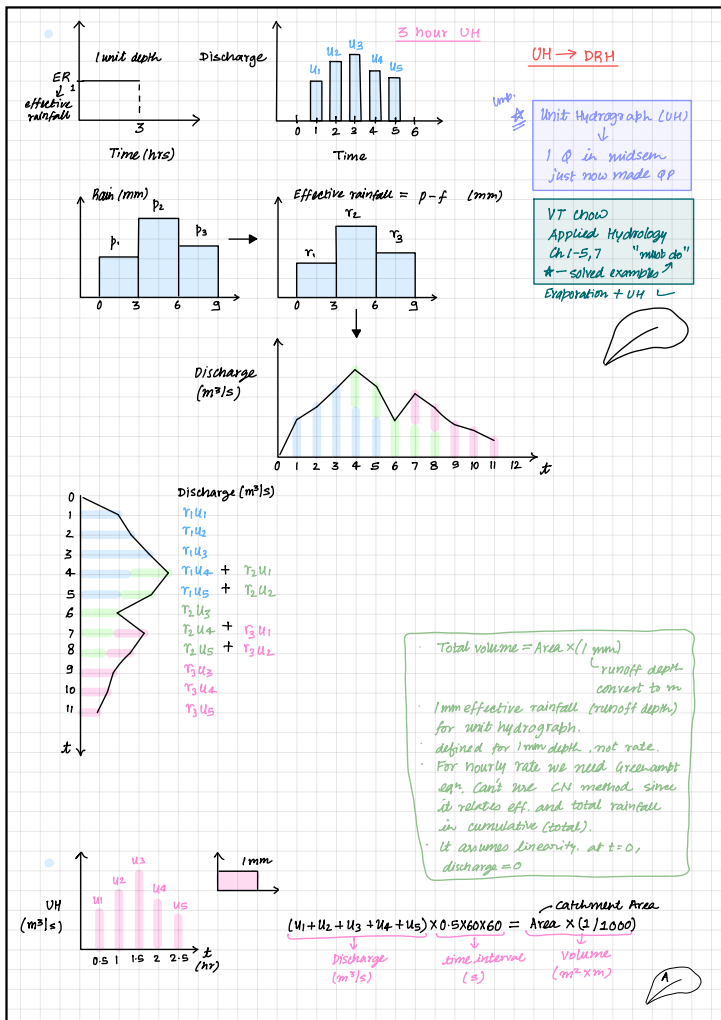 3 hour UH
1 unit depth
ER
1
effective
rainfall
3
Time (hrs)
Discharge
u1 u2 u3 u4 u5
0 1 2 3 4 5 6
Time
UH → DRH
imp.
Unit Hydrograph (UH)
↓
1 Q in midsem
just now made QP
VT Chow
Applied Hydrology
Ch 1-5, 7 "must do"
★ - solved examples
Evaporation + UH
Rain (mm)
P1 P2 P3
0 3 6 9
Effective rainfall = p-f (mm)
r1 r2 r3
0 3 6 9
Discharge
(m³/s)
0 1 2 3 4 5 6 7 8 9 10 11 12 t
Discharge (m³/s)
0
1 r1u1
2 r1u2
3 r1u3
4 r1u4 + r2u1
5 r1u5 + r2u2
6 r2u3
7 r2u4 + r3u1
8 r2u5 + r3u2
9 r3u3
10 r3u4
11 r3u5
t
· Total volume = Area × (1 mm)
runoff depth
convert to m
· 1mm effective rainfall (runoff depth)
for unit hydrograph.
· defined for 1mm depth, not rate.
· For hourly rate we need Greenampt
eqn. Can't use CN method since
it relates eff. and total rainfall
in cumulative (total).
· It assumes linearity. at t=0,
discharge = 0
UH
(m³/s)
u1 u2 u3 u4 u5
0.5 1 1.5 2 2.5
t
(hr)
1mm
Catchment Area
(u1+u2+u3+u4+u5) × 0.5×60×60 = Area × (1/1000)
Discharge time interval Volume
(m³/s) (s) (m² × m)
A